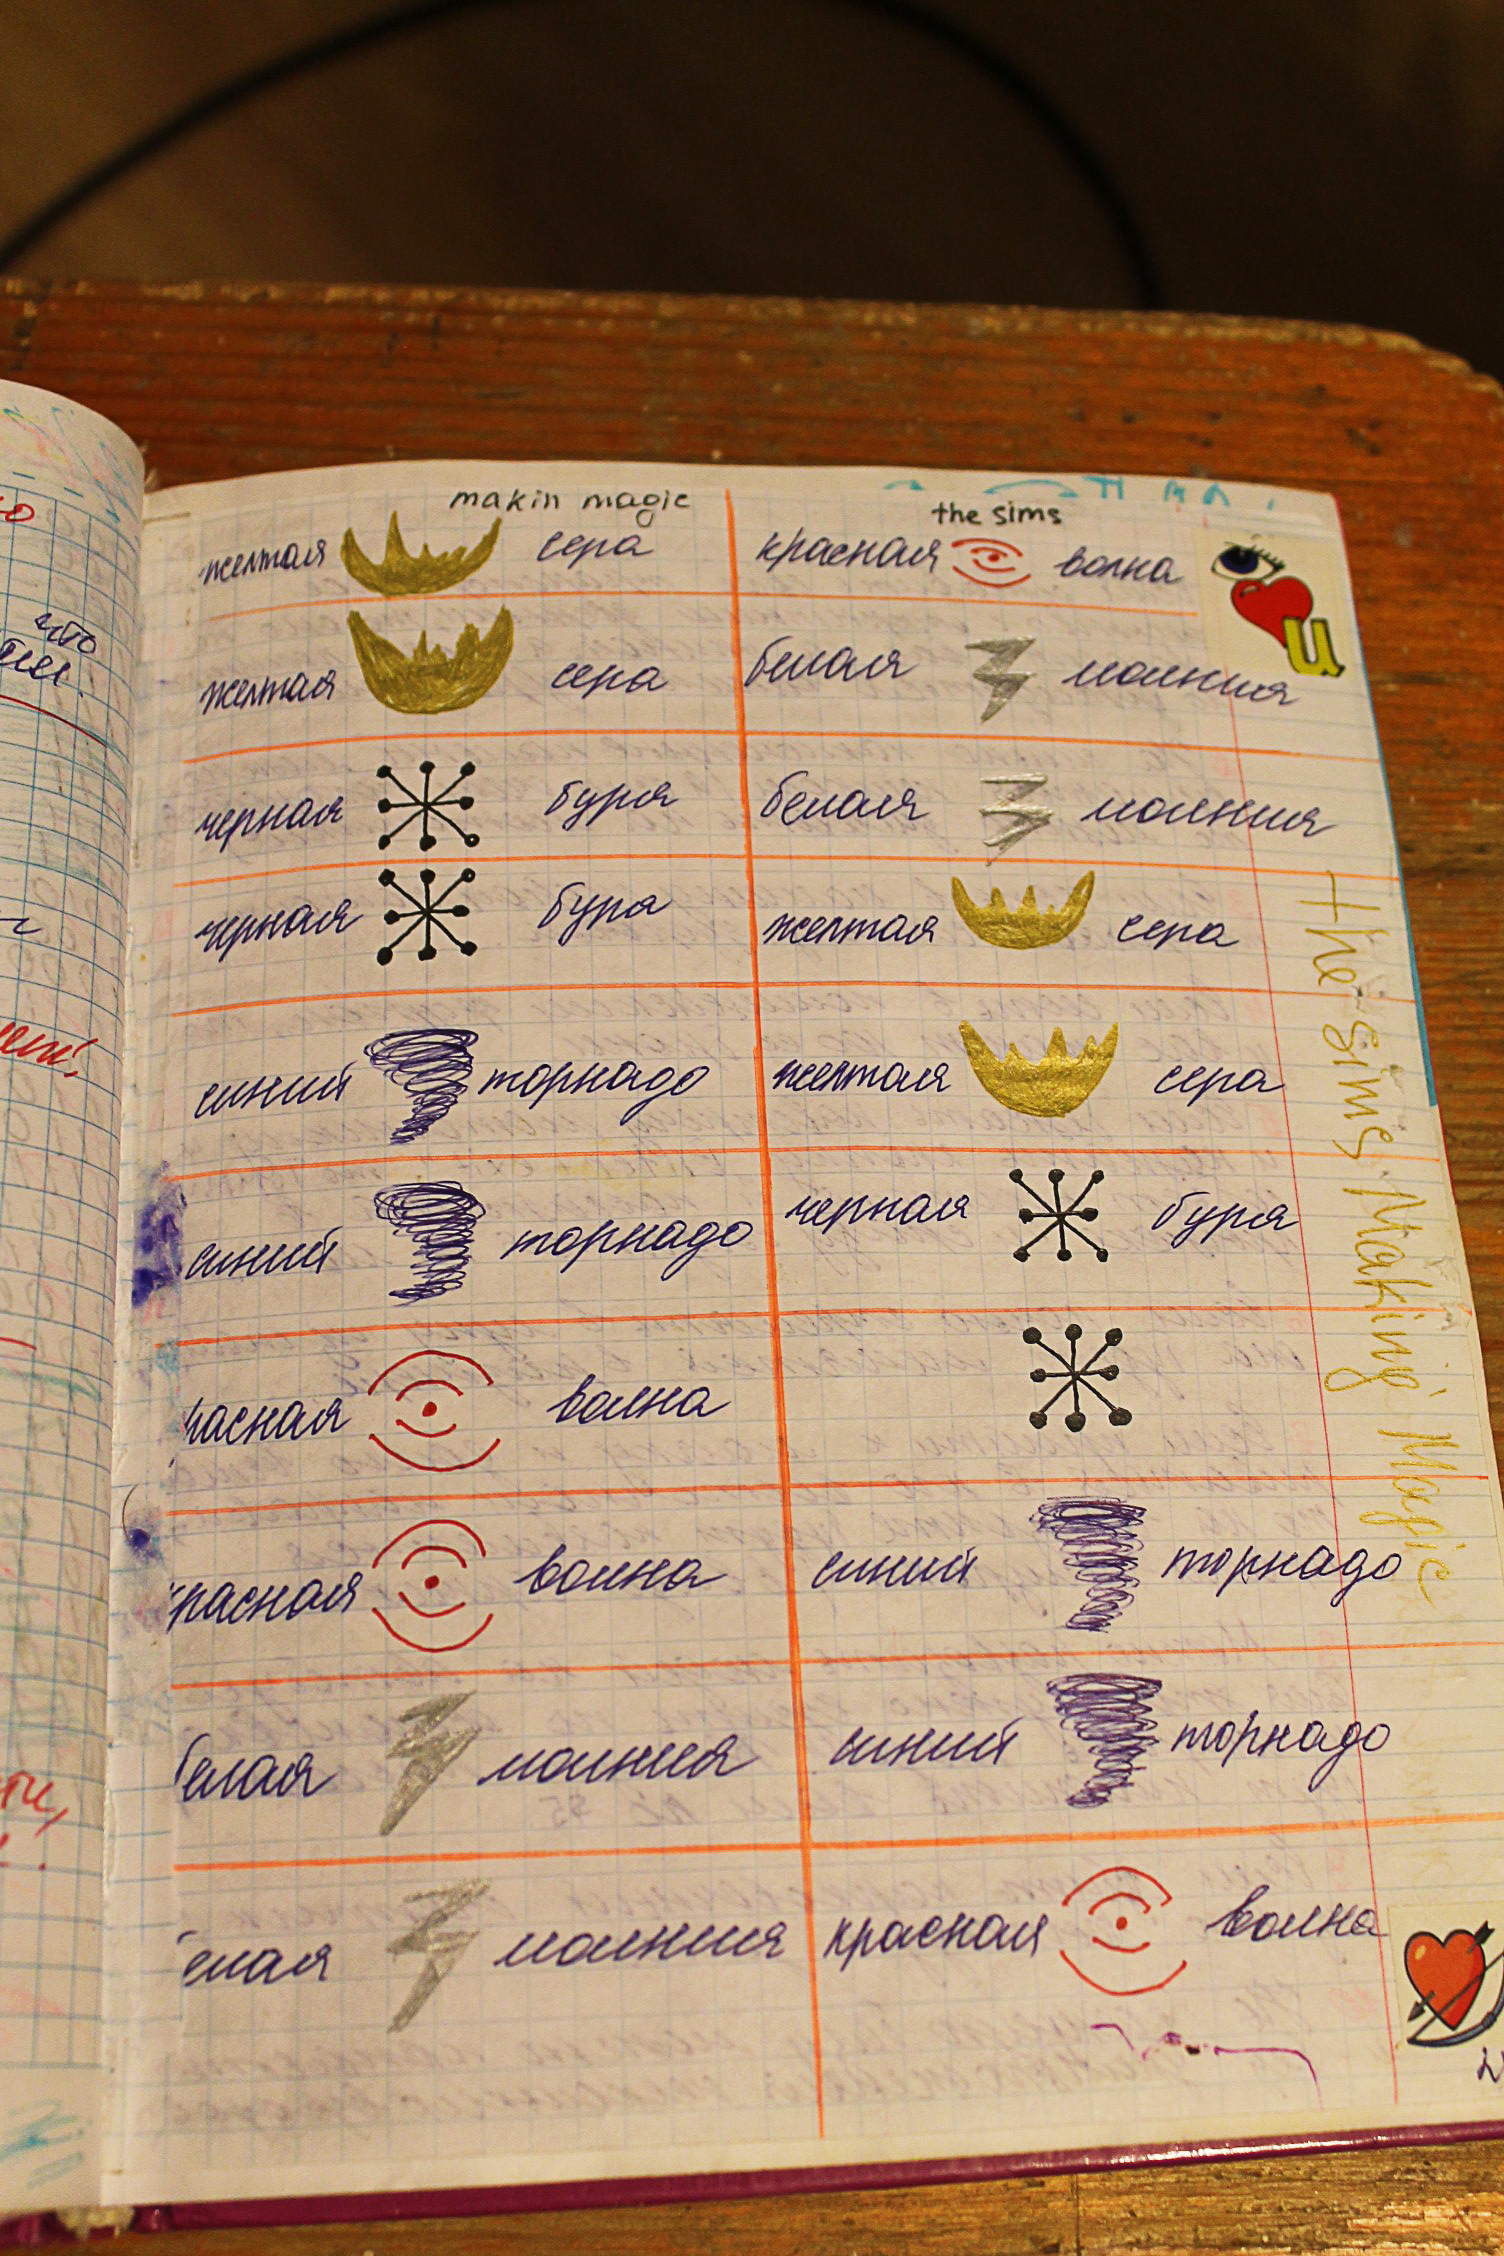 makin magic
the sims
желтая сера
красная волна
желтая сера
белая молния
черная буря
белая молния
черная буря
желтая сера
синий торнадо
желтая сера
синий торнадо
черная буря
расная волна
красная волна
синий торнадо
белая молния
синий торнадо
елая молния
красная волна
The Sims Making Magic
u
что